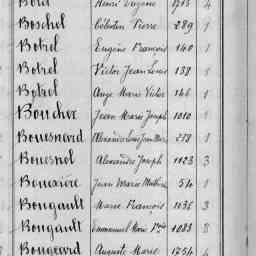 Henri Eugène 4
Boschel Célestin Pierre 289 1
Botrel Eugène François 140 1
Botrel Victor Jean Louis 138 1
Botrel Ange Marie Victor 146 1
Boucher Jean Marie Joseph 1010 1
Bouesnard Alexandre Louis Jean Marie 278 1
Bouesnel Alexandre Joseph 1123 3
Jean Marie Mathurin 54 1
Bougault Marie François 1036 3
Bougault Emmanuel Marie 1083 8
Bougeard Auguste Marie 1754 4